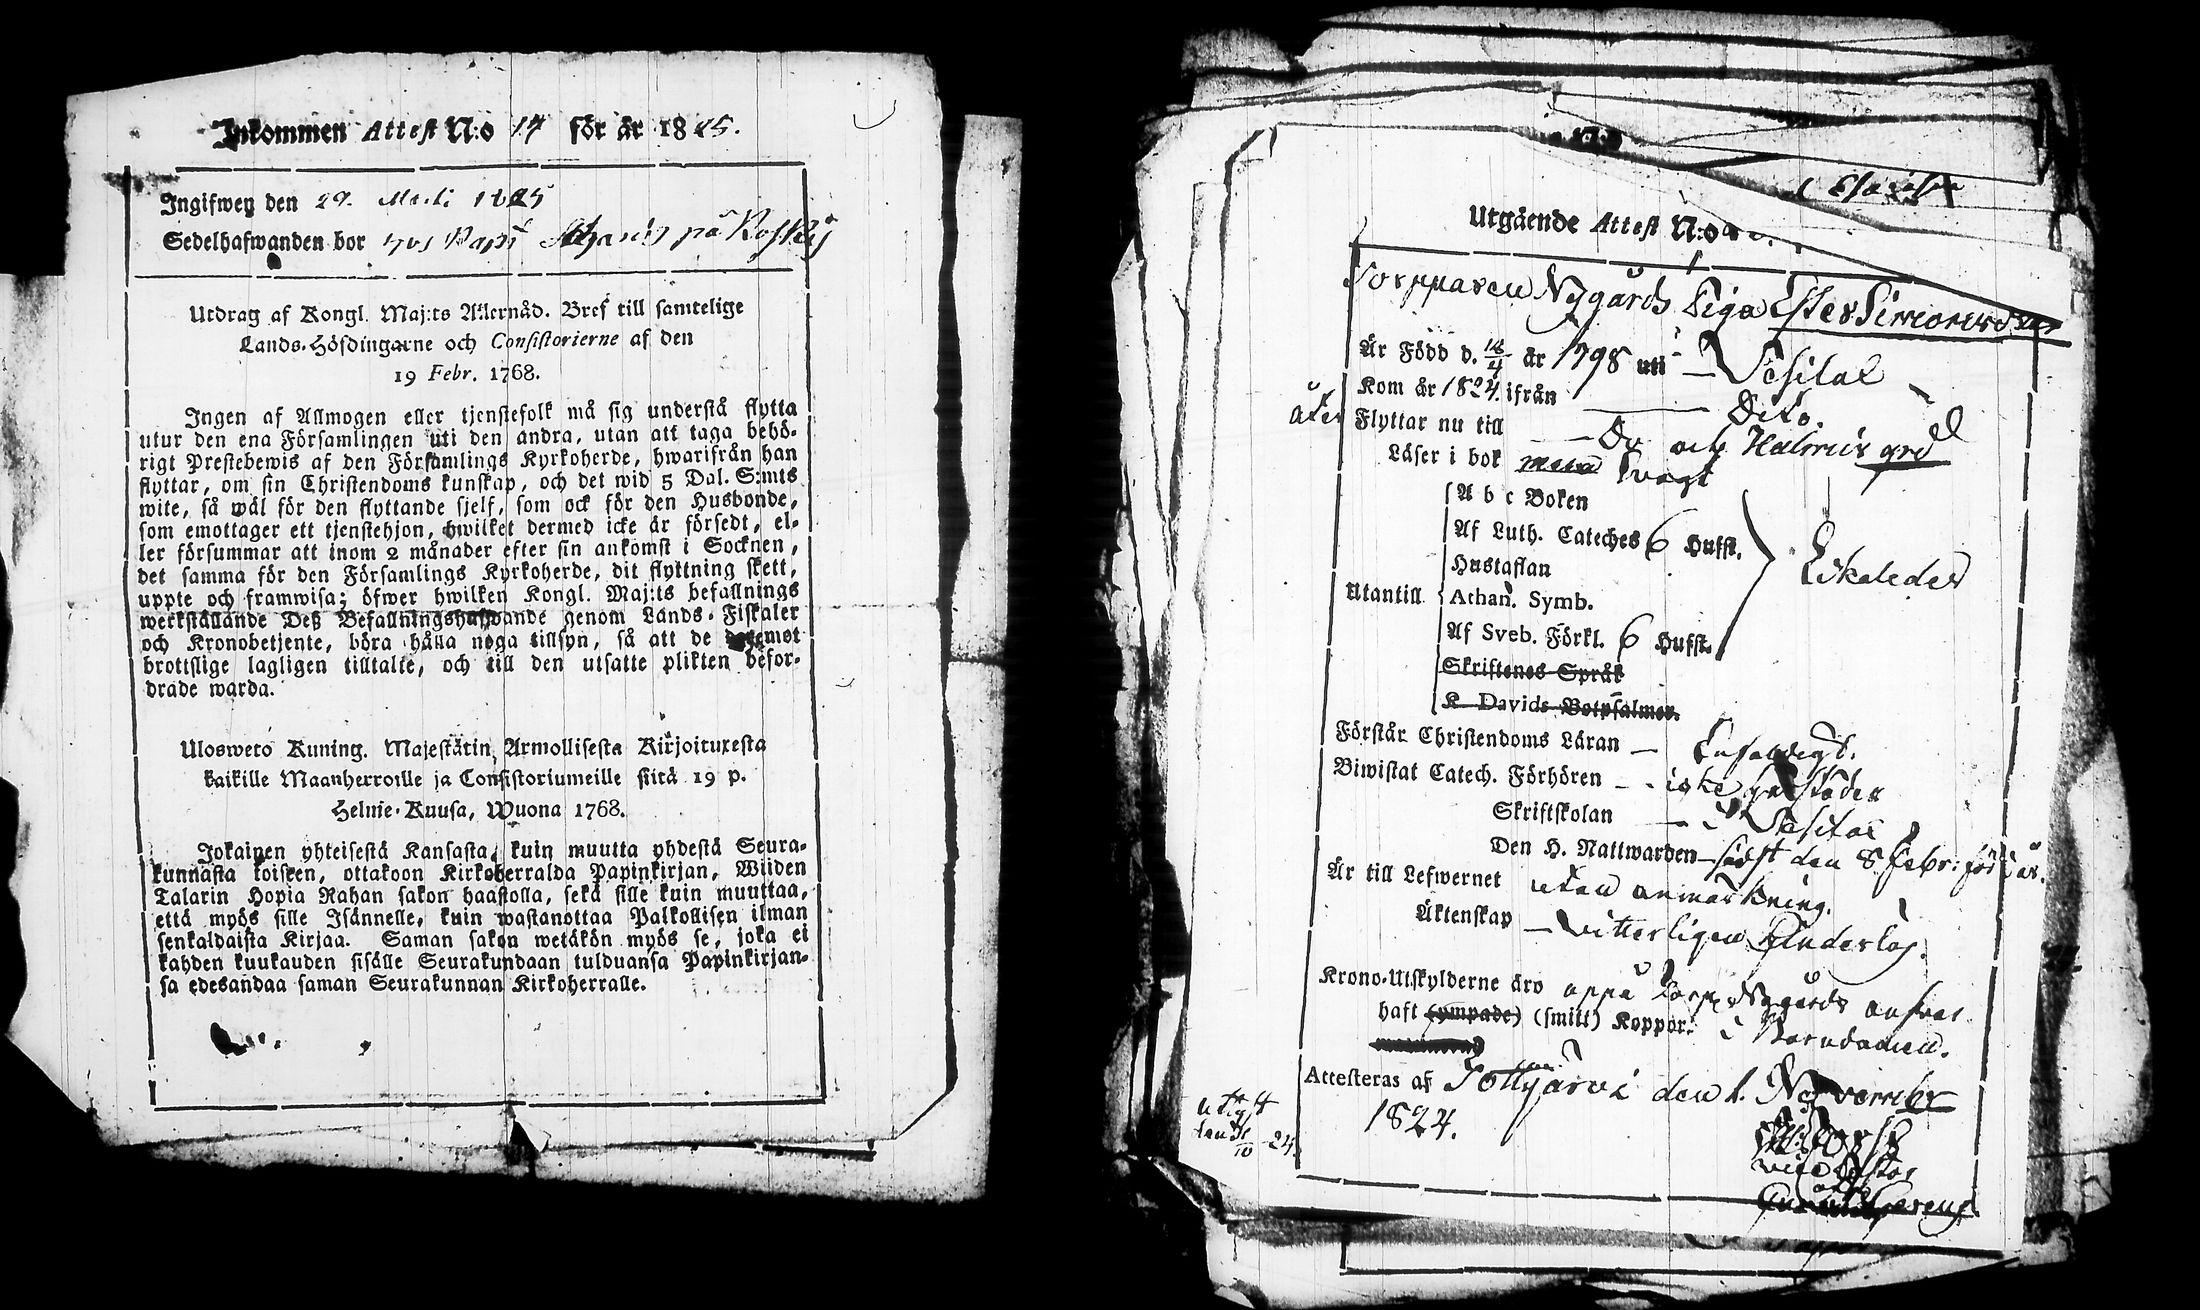 Inkommen Attest N:o 14 för år 1825.
Ingifwen den 29. 1825
Sedelhafwanden bor hos på
Utdrag af Kongl. Maj:ts Allernåd. Bref till samtelige
Lands-Höfdingarne och Consistorierne af den
19 Febr. 1768.
Ingen af Allmogen eller tjenstefolk må sig understå flytta
utur den ena Församlingen uti den andra, utan att taga behö-
rigt Prestebewis af den Församlings Kyrkoherde, hwarifrån han
flyttar, om sin Christendoms kunskap, och det wid 5 Dal. S:mts
wite, så wäl för den flyttande sjelf, som ock för den Husbonde,
som emottager ett tjenstehjon, hwilket dermed icke är försedt, el-
ler försummar att inom 2 månader efter sin ankomst i Socknen,
det samma för den Församlings Kyrkoherde, dit flyttning skett,
uppte och framwisa; öfwer hwilken Kongl. Maj:ts befallnings
werkställande Deß Befallningshafwande genom Lands-Fiskaler
och Kronobetjente, böra hålla noga tillsyn, så att de deremot
brottslige lagligen tilltalte, och till den utsatte plikten befor-
drade warda.
Uloswetö Kuning. Majestätin Armollisesta Kirjoituxesta
kaikille Maanherroille ja Consistoriumeille siitä 19 p.
Helme-Kuusa, Wuona 1768.
Jokainen yhteisestä Kansasta, kuin muutta yhdestä Seura-
kunnasta toiseen, ottakoon Kirkoherralda Papinkirjan, Wiiden
Talarin Hopia Rahan sakon haastolla, sekä sille kuin muuttaa,
että myös sille Isännelle, kuin wastanottaa Palkollisen ilman
senkaldaista Kirjaa. Saman sakon wetäkön myös se, joka ei
kahden kuukauden sisälle Seurakundaan tulduansa Papinkirjan-
sa edesandaa saman Seurakunnan Kirkoherralle.
Utgående Attest N:o
Torpparen Nygårds Piga Ester Simonsd:r
Är Född d. 18/4 år 1798 uti Vesilax
Kom år 1824 ifrån Dito
åter Flyttar nu till Do och
Läser i bok svagt
A b c Boken
Af Luth. Cateches 6 Hufst.
Hustaflan
Utantill Athan. Symb.
Af Sveb. Förkl. 6 Hufst.
Skriftenes Språk
K Davids Botpsalmer.
Förstår Christendoms Läran Enfaldigt.
Biwistat Catech. Förhören icke
Skriftskolan i Vesilax
Den H. Nattwarden sidst den 8 Febr: för i år.
Är till Lefwernet utan anmärkning.
Äktenskap vitterligen hinderlös.
Krono-Utskylderne äro uppå Torpp. Nygårds ansvar
haft (ympade) (smitt) Koppor. i Barndomen.
Attesteras af Tottijärvi den 1. November
1824.